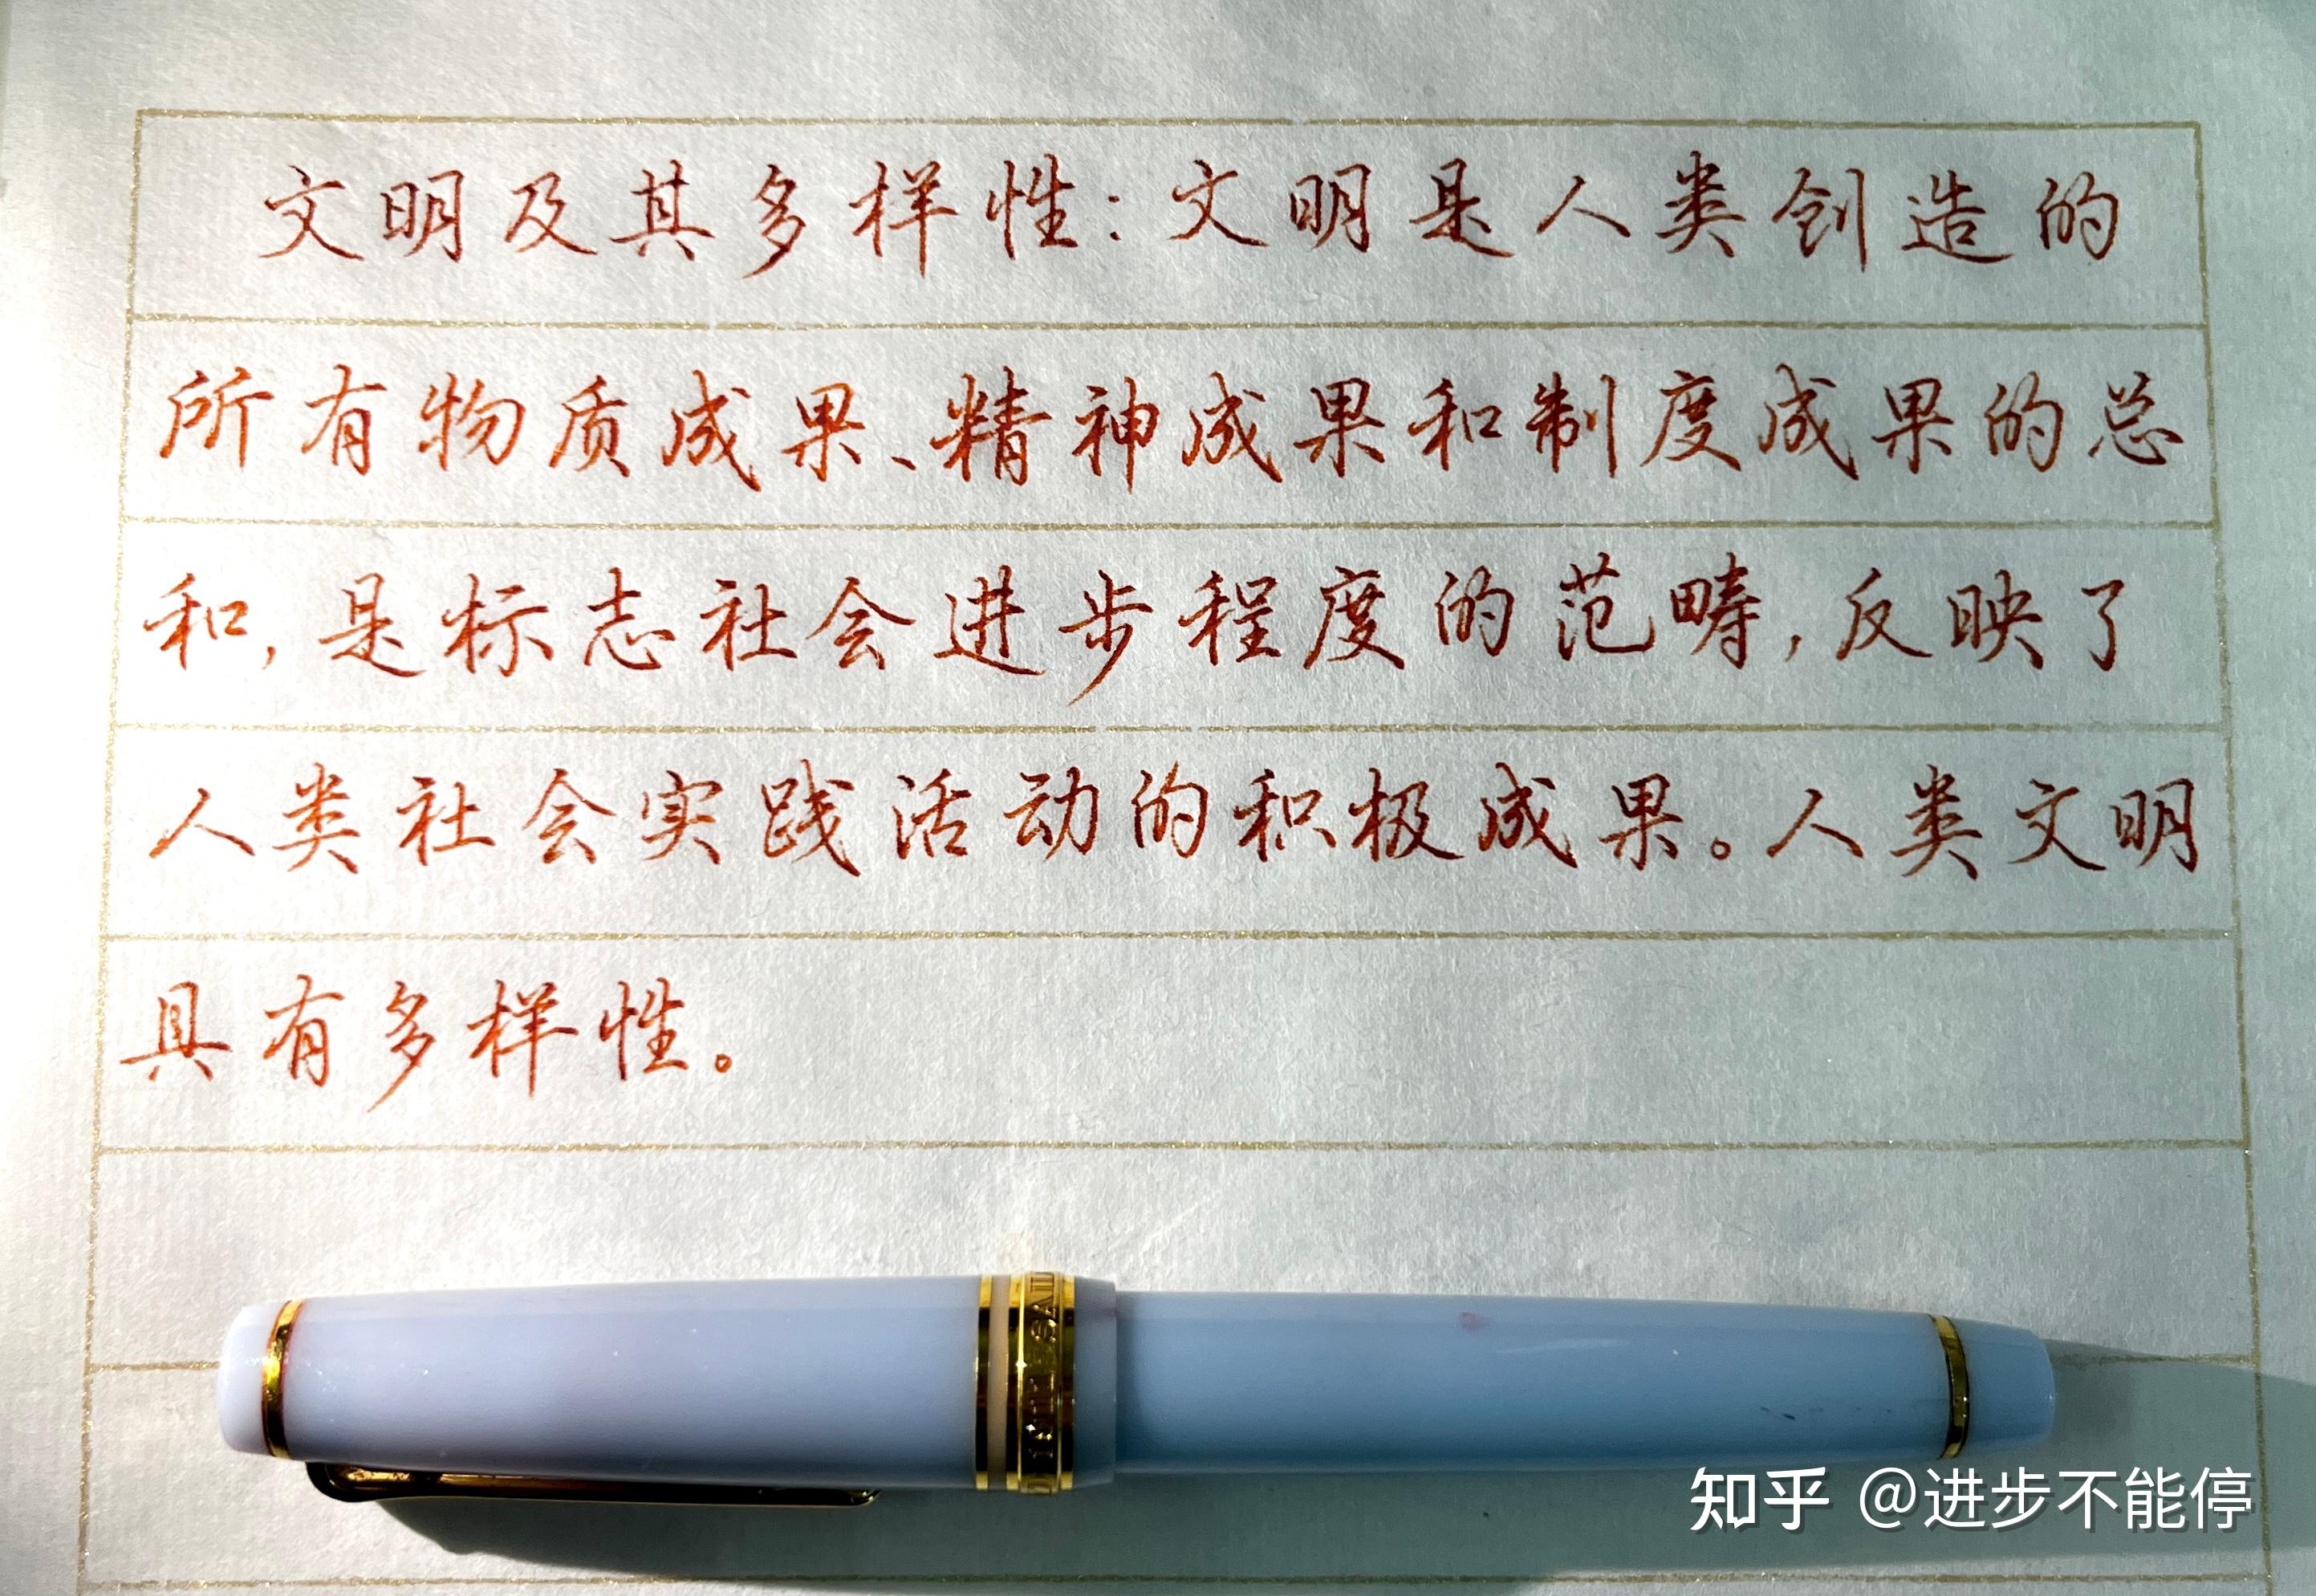 文明及其多样性：文明是人类创造的
所有物质成果、精神成果和制度成果的总
和，是标志社会进步程度的范畴，反映了
人类社会实践活动的积极成果。人类文明
具有多样性。
知乎 @进步不能停